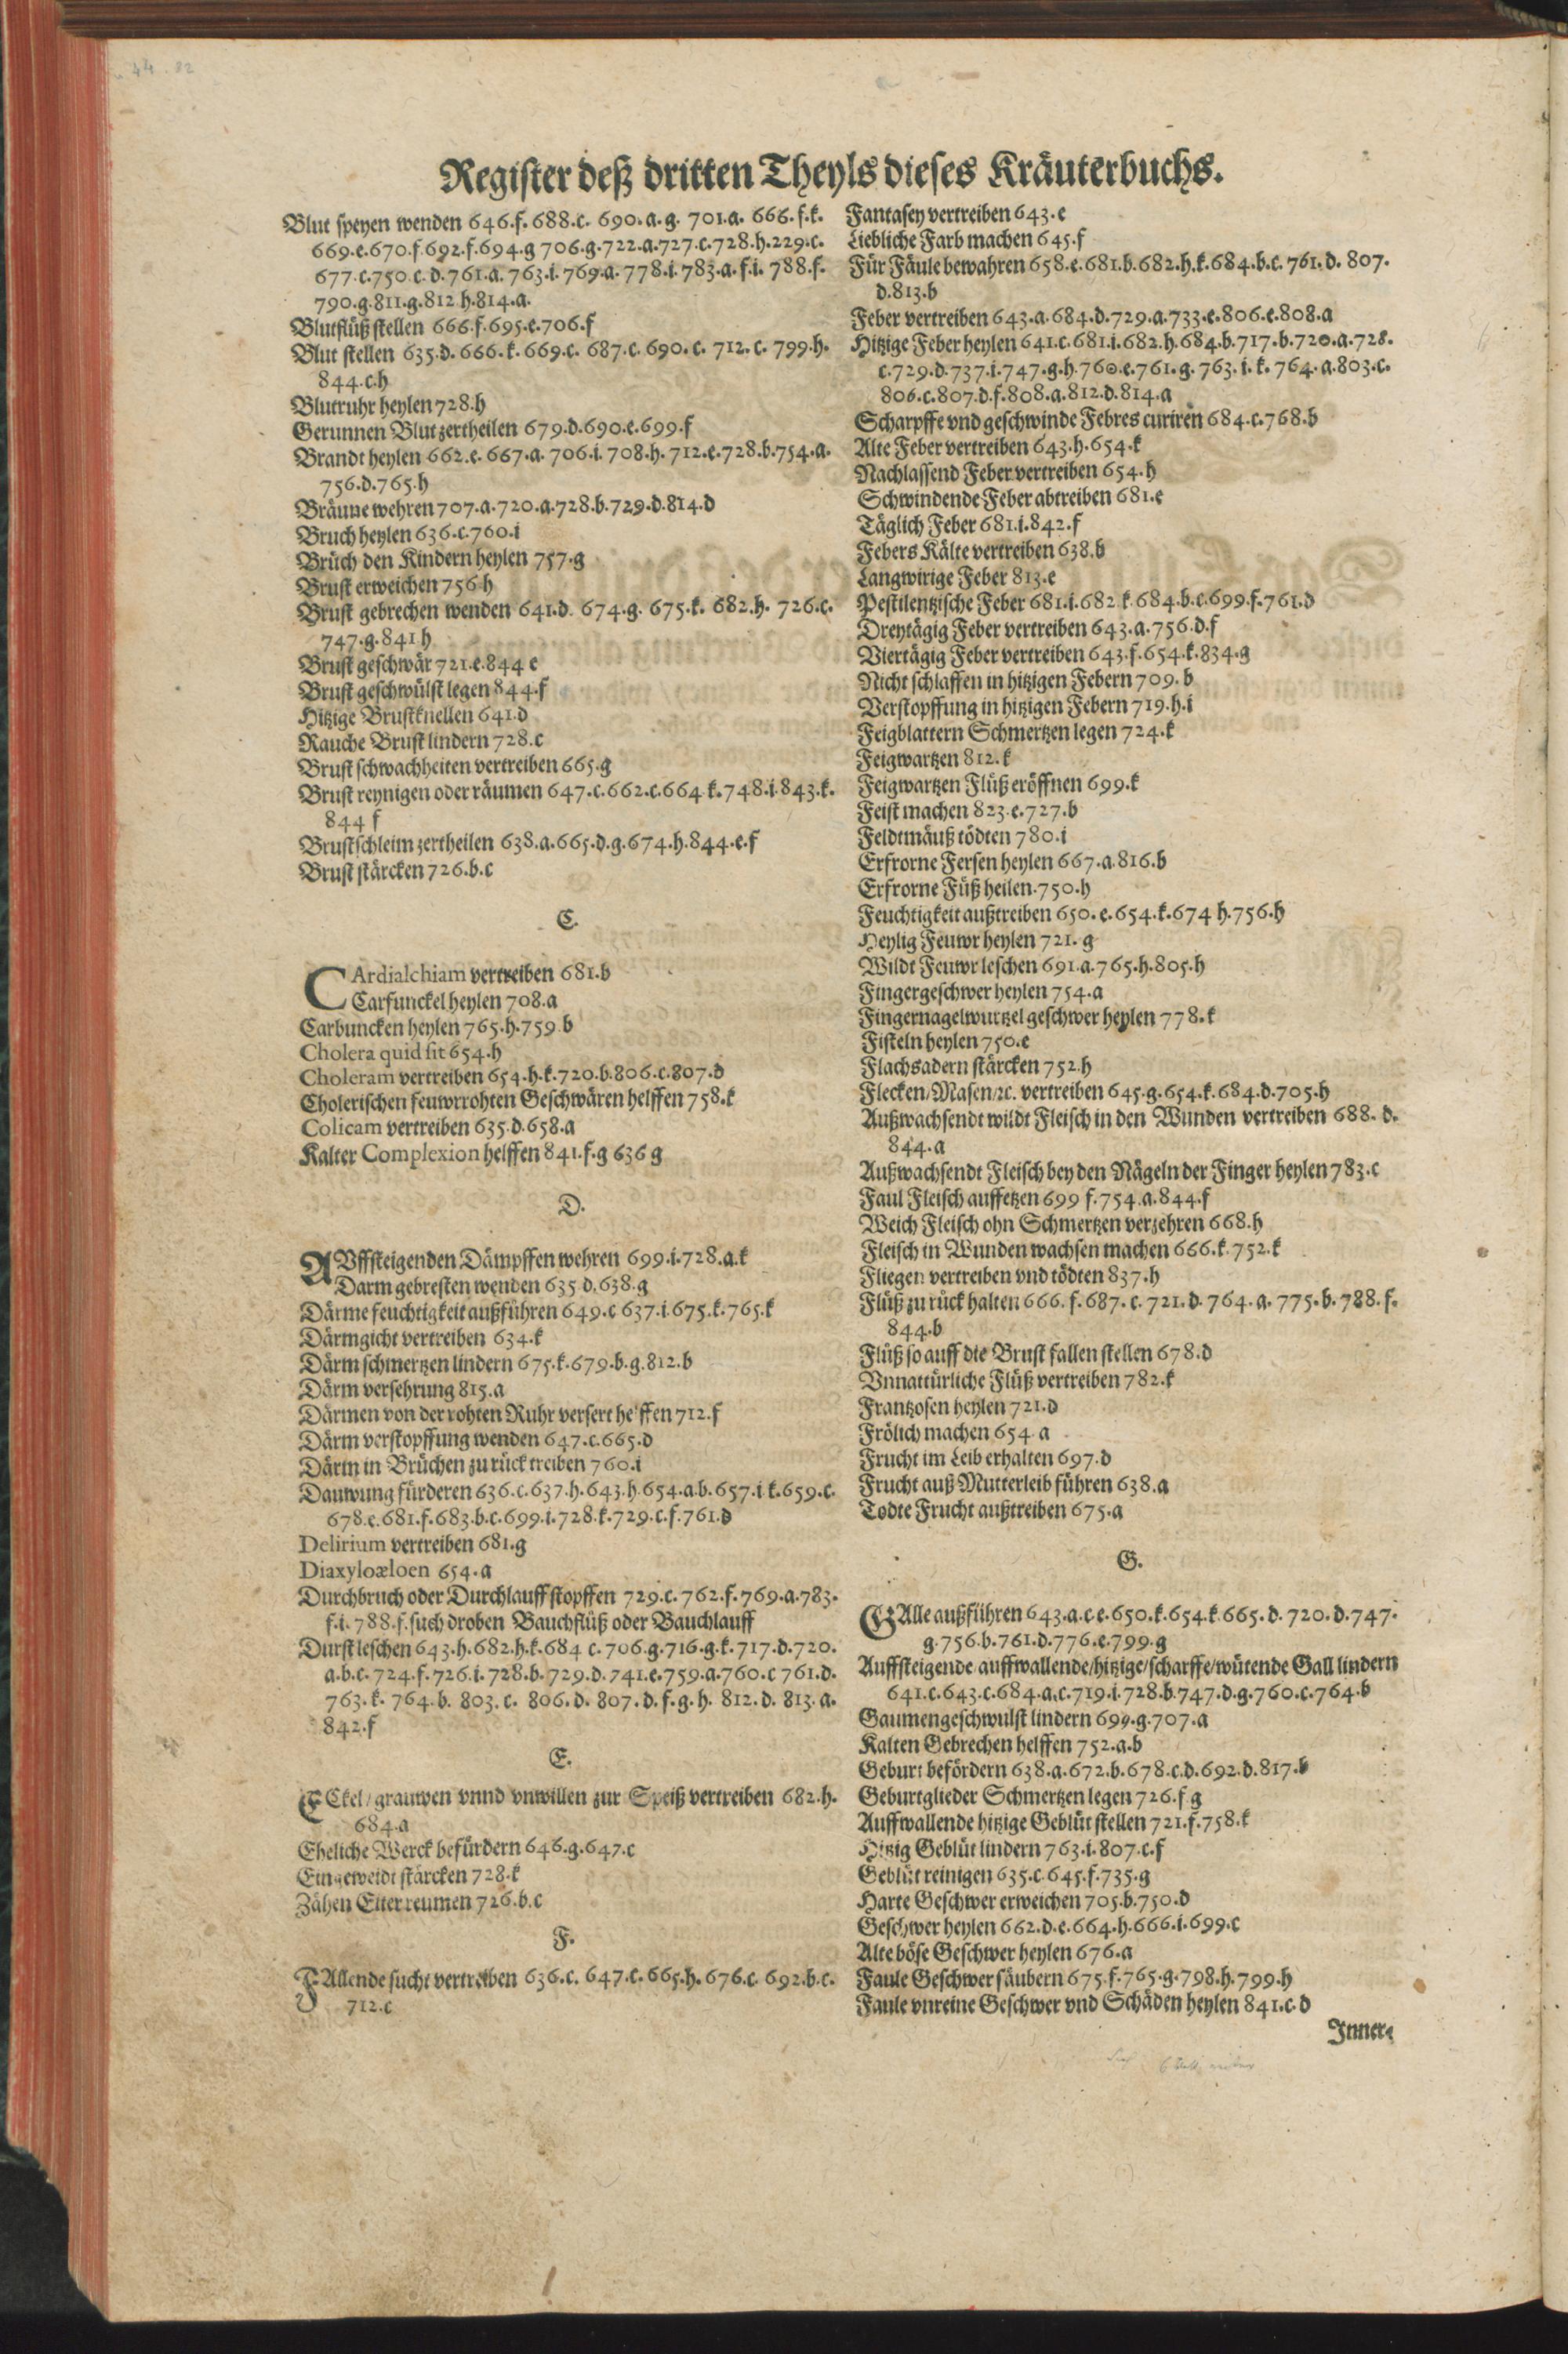 Register deß dritten Theyls dieses Kräuterbuchs.
Blut speyen wenden 646.f. 688.c. 690.a.g. 701.a. 666.f.k.
669.e.670.f.692.f.694.g 706.g.722.a.727.c.728.h.229.c.
677.c.750.c.d.761.a.763.i.769.a.778.i.783.a.f.i. 788.f.
790.g.811.g.812 h.814.a.
Blutflüß stellen 666.f.695.e.706.f
Blut stellen 635.d. 666.k. 669.c. 687.c. 690.c. 712.c. 799.h.
844.c.h
Blutruhr heylen 728.h
Gerunnen Blut zertheilen 679.d.690.e.699.f
Brandt heylen 662.e. 667.a. 706.i. 708.h. 712.e.728.b.754.a.
756.d.765.h
Bräune wehren 707.a.720.a.728.b.729.d.814.d
Bruch heylen 636.c.760.i
Brüch den Kindern heylen 757.g
Brust erweichen 756.h
Brust gebrechen wenden 641.d. 674.g. 675.k. 682.h. 726.c.
747.g.841 h
Brust geschwär 721.e.844 e
Brust geschwülst legen 844.f
Hitzige Brustknellen 641.d
Rauche Brust lindern 728.c
Brust schwachheiten vertreiben 665.g
Brust reynigen oder räumen 647.c.662.c.664 k.748.i.843.k.
844 f
Brustschleim zertheilen 638.a.665.d.g.674.h.844.e.f
Brust stärcken 726.b.c
C.
CArdialchiam vertreiben 681.b
Carfunckel heylen 708.a
Carbuncken heylen 765.h.759 b
Cholera quid sit 654.h
Choleram vertreiben 654.h.k.720.b.806.c.807.d
Cholerischen feuwrrohten Geschwären helffen 758.k
Colicam vertreiben 635.d.658.a
Kalter Complexion helffen 841.f.g 636 g
D.
AVffsteigenden Dämpffen wehren 699.i.728.a.k
Darm gebresten wenden 635 d.638.g
Därme feuchtigkeit außführen 649.c 637.i.675.k.765.k
Därmgicht vertreiben 634.k
Därm schmertzen lindern 675.k.679.b.g.812.b
Därm versehrung 815.a
Därmen von der rohten Ruhr versert helffen 712.f
Därm verstopffung wenden 647.c.665.d
Därm in Brüchen zu rück treiben 760.i
Dauwung fürderen 636.c.637.h.643.h.654.a.b.657.i k.659.c.
678.e.681.f.683.b.c.699.i.728.k.729.c.f.761.d
Delirium vertreiben 681.g
Diaxyloæloen 654.a
Durchbruch oder Durchlauff stopffen 729.c.762.f.769.a.783.
f.i.788.f. such droben Bauchflüß oder Bauchlauff
Durst leschen 643.h.682.h.k.684 c.706.g.716.g.k.717.d.720.
a.b.c.724.f.726.i.728.b.729.d.741.e.759.a.760.c 761.d.
763.k. 764.b. 803.c. 806.d. 807.d.f.g.h. 812.d. 813.a.
842.f
E.
ECkel/grauwen vnnd vnwillen zur Speiß vertreiben 682.h.
684.a
Eheliche Werck befürdern 646.g.647.c
Eingeweidt stärcken 728.k
Zähen Eiter reumen 726.b.c
F.
FAllende sucht vertreiben 636.c. 647.c. 665.h. 676.c. 692.b.c.
712.c
Fantasey vertreiben 643.e
Liebliche Farb machen 645.f
Für Fäule bewahren 658.e.681.b.682.h.k.684.b.c.761.d. 807.
d.813.b
Feber vertreiben 643.a.684.d.729.a.733.e.806.e.808.a
Hitzige Feber heylen 641.c.681.i.682.h.684.b.717.b.720.a.728.
c.729.d.737.i.747.g.h.760.e.761.g. 763.i.k. 764.a.803.c.
806.c.807.d.f.808.a.812.d.814.a
Scharpffe vnd geschwinde Febres curiren 684.c.768.b
Alte Feber vertreiben 643.h.654.k
Nachlassend Feber vertreiben 654.h
Schwindende Feber abtreiben 681.e
Täglich Feber 681.i.842.f
Febers Kälte vertreiben 638.b
Langwirige Feber 813.e
Pestilentzische Feber 681.i.682 k.684.b.c.699.f.761.d
Dreytägig Feber vertreiben 643.a.756.d.f
Viertägig Feber vertreiben 643.f.654.k.834.g
Nicht schlaffen in hitzigen Febern 709.b
Verstopffung in hitzigen Febern 719.h.i
Feigblattern Schmertzen legen 724.k
Feigwartzen 812.k
Feigwartzen Flüß eröffnen 699.k
Feist machen 823.e.727.b
Feldtmäuß tödten 780.i
Erfrorne Fersen heylen 667.a.816.b
Erfrorne Füß heilen.750.h
Feuchtigkeit außtreiben 650.e.654.k.674 h.756.h
Heylig Feuwr heylen 721.g
Wildt Feuwr leschen 691.a.765.h.805.h
Fingergeschwer heylen 754.a
Fingernagelwurtzel geschwer heylen 778.k
Fisteln heylen 750.e
Flachsadern stärcken 752.h
Flecken/Masen/ꝛc. vertreiben 645.g.654.k.684.d.705.h
Außwachsendt wildt Fleisch in den Wunden vertreiben 688.d.
844.a
Außwachsendt Fleisch bey den Nägeln der Finger heylen 783.c
Faul Fleisch auffetzen 699 f.754.a.844.f
Weich Fleisch ohn Schmertzen verzehren 668.h
Fleisch in Wunden wachsen machen 666.k.752.k
Fliegen vertreiben vnd tödten 837.h
Flüß zu rück halten 666.f.687.c.721.d.764.a.775.b.788.f.
844.b
Flüß so auff die Brust fallen stellen 678.d
Vnnattürliche Flüß vertreiben 782.k
Frantzosen heylen 721.d
Frölich machen 654 a
Frucht im Leib erhalten 697.d
Frucht auß Mutterleib führen 638.a
Todte Frucht außtreiben 675.a
G.
GAlle außführen 643.a.c e.650.k.654.k.665.d.720.d.747.
g.756.b.761.d.776.e.799.g
Auffsteigende/auffwallende/hitzige/scharffe/wütende Gall lindern
641.c.643.c.684.a.c.719.i.728.b.747.d.g.760.c.764.b
Gaumengeschwulst lindern 699.g.707.a
Kalten Gebrechen helffen 752.a.b
Geburt befördern 638.a.672.b.678.c.d.692.d.817.b
Geburtglieder Schmertzen legen 726.f g
Auffwallende hitzige Geblüt stellen 721.f.758.k
Hitzig Geblüt lindern 763.i.807.c.f
Geblüt reinigen 635.c.645.f.735.g
Harte Geschwer erweichen 705.b.750.d
Geschwer heylen 662.d.e.664.h.666.i.699.c
Alte böse Geschwer heylen 676.a
Faule Geschwer säubern 675.f.765.g.798.h.799.h
Faule vnreine Geschwer vnd Schäden heylen 841.c.d
Inner-